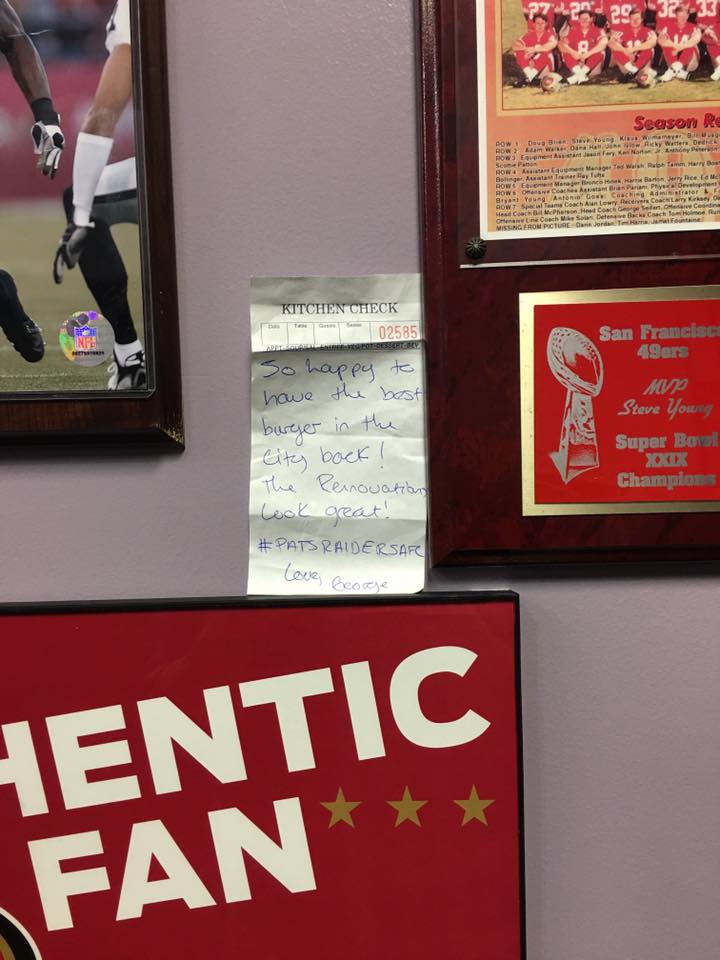 27 20 29 32 33
Season Re
ROW 1 Doug Brien, Steve Young, Klaus Wilmsmeyer, Bill Musg
ROW 2 Adam Walker, Dana Hall, John
Ricky Watters, Dedrick
ROW 3 Equipment Assistant Jason Fery, Ken Norton, Jr. Anthony Peterson
Scottie Patton
ROW 4 Assistant Equipment Manager Ted Walsh, Ralph Tamm, Harry Boa
Bollinger, Assistant Trainer Ray Tufts
ROW 5 Equipment Manager Bronco Hinek, Harris Barton, Jerry Rice, Ed Mc
ROW 6 Offensive Coaches Assistant Brian Pariani, Physical Development
Bryant Young, Antonio Goss, Coaching Administrator &
ROW 7 Special Teams Coach Alan Lowry, Receivers Coach Larry Kirksey, De
Head Coach Bill McPherson, Head Coach George Seifert, Offensive Coordina
Offensive Line Coach Bobb
Defensive Backs Coach Tom Holmoe, Ru
MISSING FROM PICTURE Darin Jordan, Tim Harris, Jamal Fountaine
NFL
KITCHEN CHECK
Date Table Guests Server 02585
APPT-SOUP/SAL-ENTREE-VEG/POT-DESSERT-BEV
So happy to
have the best
burger in the
City back!
the Rennovations
look great!
#PATSRAIDERSAFC
Love, George
San Francisco
49ers
MVP
Steve Young
Super Bowl
XXIX
Champions
HENTIC
FAN